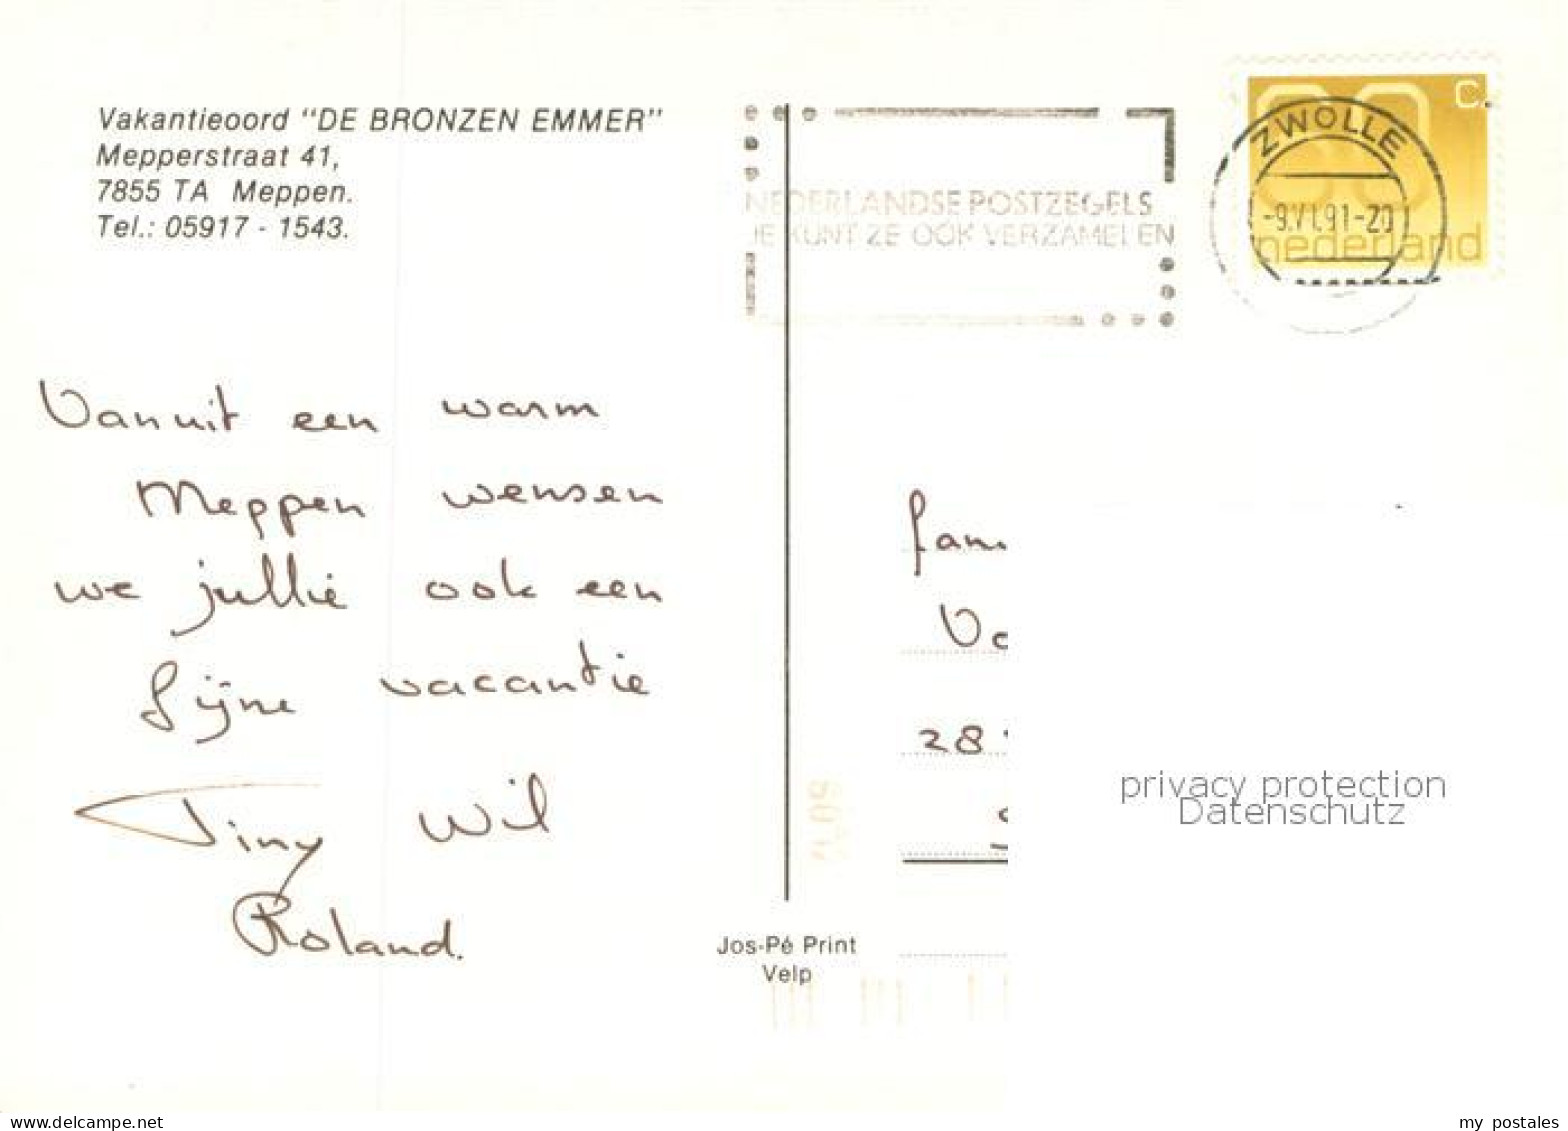 Vakantieoord "DE BRONZEN EMMER"
Mepperstraat 41,
7855 TA Meppen.
Tel.: 05917 - 1543.
NEDERLANDSE POSTZEGELS
JE KUNT ZE OOK VERZAMELEN
C.
ZWOLLE
-9.VI.91-20
nederland
Vanuit een warm
Meppen wensen
we jullie ook een
fijne vacantie
Tiny Wil
Roland.
fam.
28
privacy protection
Datenschutz
Jos-Pé Print
Velp
www.delcampe.net
my_postales